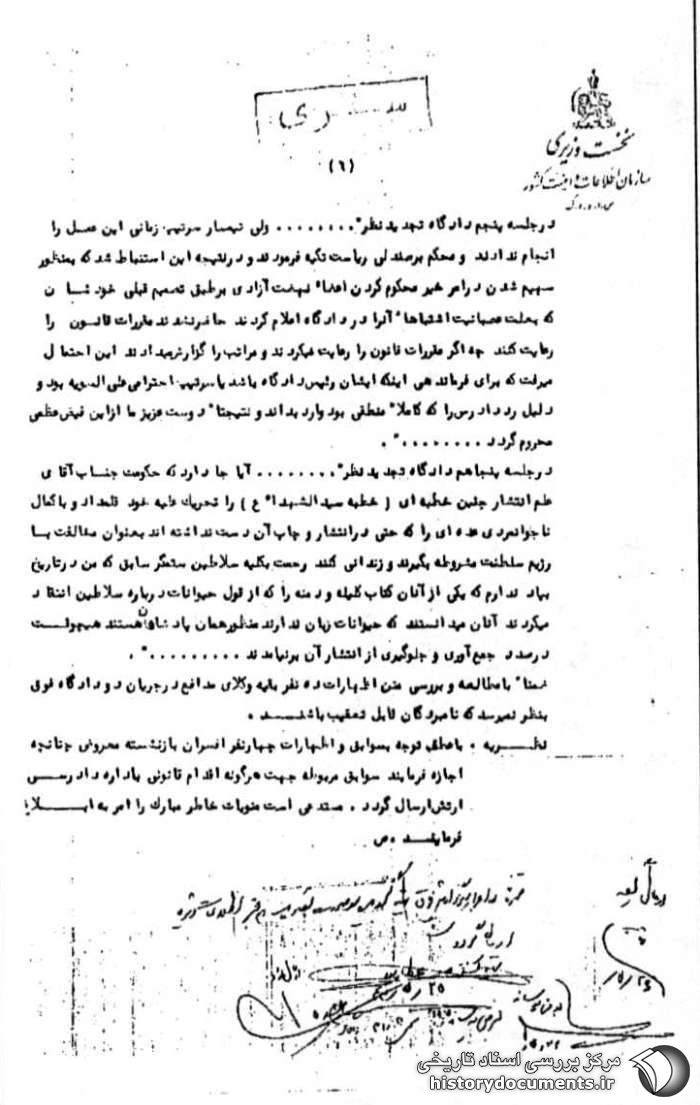 سری
نخست وزیری
سازمان اطلاعات و امنیت کشور
س.ا.و.ا.ک
(٦)
در جلسه پنجم دادگاه تجدید نظر" ........ ولی تیمسار سرتیپ زمانی این عمل را
انجام ندادند و محکم برصندلی ریاست تکیه فرمودند و درنتیجه این استنباط شد که بمنظور
سهیم شدن در امر خیر محکوم کردن اعضاء نهضت آزادی برطبق تصمیم قبلی خودشان
که بعلت عصبانیت اشتباها" آنرا در دادگاه اعلام کردند حاضرنشدند مقررات قانون را
رعایت کنند چه اگر مقررات قانون را رعایت میکردند و مراتب را گزارش میدادند این احتمال
میرفت که برای فرماندهی اینکه ایشان رئیس دادگاه باشد یا سرتیپ احترامی علی السویه بود و
دلیل رد دادرس را که کاملا" منطقی بود وارد بداند و نتیجتا" دوست عزیز ما از این فیض عظمی
محروم گردد ........" .
در جلسه پنجاهم دادگاه تجدید نظر" ........ آیا جا دارد که حکومت جناب آقای
علم انتشار چنین خطبه ای ( خطبه سیدالشهداء ع ) را تحریک علیه خود قلمداد و باکمال
ناجوانمردی عده ای را که حتی در انتشار و چاپ آن دست نداشته اند بعنوان مخالفت با
رژیم سلطنت مشروطه بگیرند و زندانی کنند رحمت بکلیه سلاطین ستمگر سابق که من در تاریخ
بیاد ندارم که یکی از آنان کتاب کلیله و دمنه را که از قول حیوانات درباره سلاطین انتقاد
میکردند آنان میدانستند که حیوانات زبان ندارند منظور همان پادشاهان هستند هیچوقت
درصدد جمع آوری و جلوگیری از انتشار آن برنیامدند ........." .
ضمنا" با مطالعه و بررسی متن اظهارات ده نفر بقیه وکلای مدافع در جریان دو دادگاه فوق
بنظر نمیرسد که نامبردگان قابل تعقیب باشند .
نظریه . باعطف توجه بسوابق و اظهارات چهارنفر افسران بازنشسته معروض چنانچه
اجازه فرمایند سوابق مربوطه جهت هرگونه اقدام قانونی باداره دادرسی
ارتش ارسال گردد . مستدعی است منویات خاطر مبارک را امر به ابلاغ
فرمایند . ص
ارسال گردد
٢٥
مرکز بررسی اسناد تاریخی
historydocuments.ir